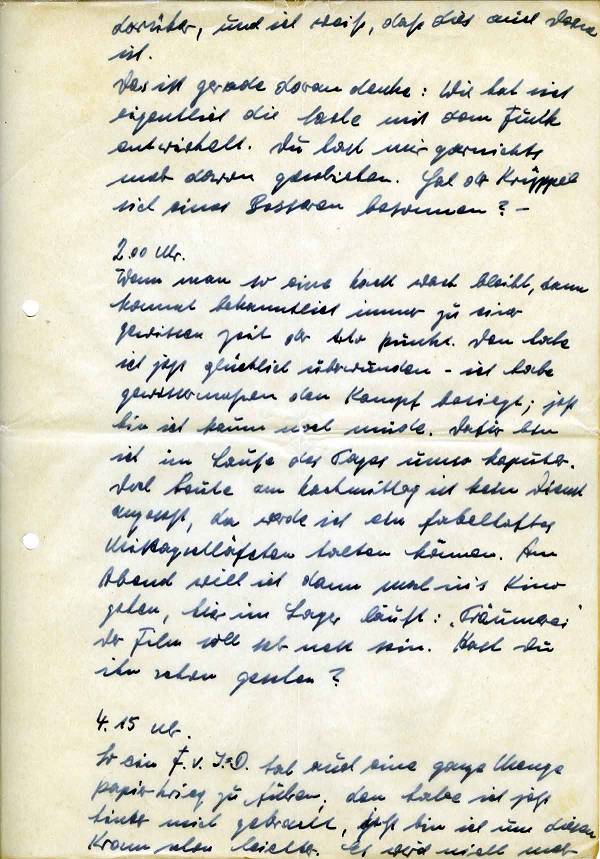 darüber, und ich weiß, daß dies auch Deine
ist.
Das ich gerade daran denke: Wie hat sich
eigentlich die Sache mit dem Funk
entwickelt. Du hast mir garnichts
mehr davon geschrieben. Hat der Krüppel
sich eines Besseren besonnen? –
2.00 Uhr.
Wenn man so eine Nacht wach bleibt, dann
kommt bekanntlich immer zu einer
gewissen Zeit der tote Punkt. Den habe
ich jetzt glücklich überwunden – ich habe
gewissermaßen den Kampf besiegt; jetzt
bin ich kaum noch müde. Dafür bin
ich im Laufe des Tages umso kaputter.
Doch heute am Nachmittag ist kein Dienst
angesetzt, da werde ich ein fabelhaftes
Mittagsschläfchen halten können. Am
Abend will ich dann mal in's Kino
gehen, hier im Lager läuft: „Träumerei"
Der Film soll sehr nett sein. Hast Du
ihn schon gesehen?
4.15 Uhr.
So ein F. v. D. hat auch eine ganze Menge
Papierkrieg zu führen; den habe ich jetzt
hinter mich gebracht, jetzt bin ich um diesen
Kram schon leichter. Es wird nicht mehr